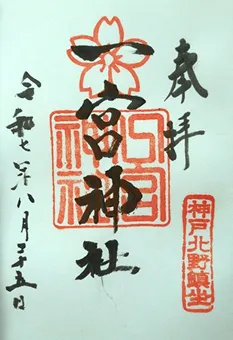 奉拝
一宮神社
一宮神社
神戸北野鎮坐
令和七年八月二十五日